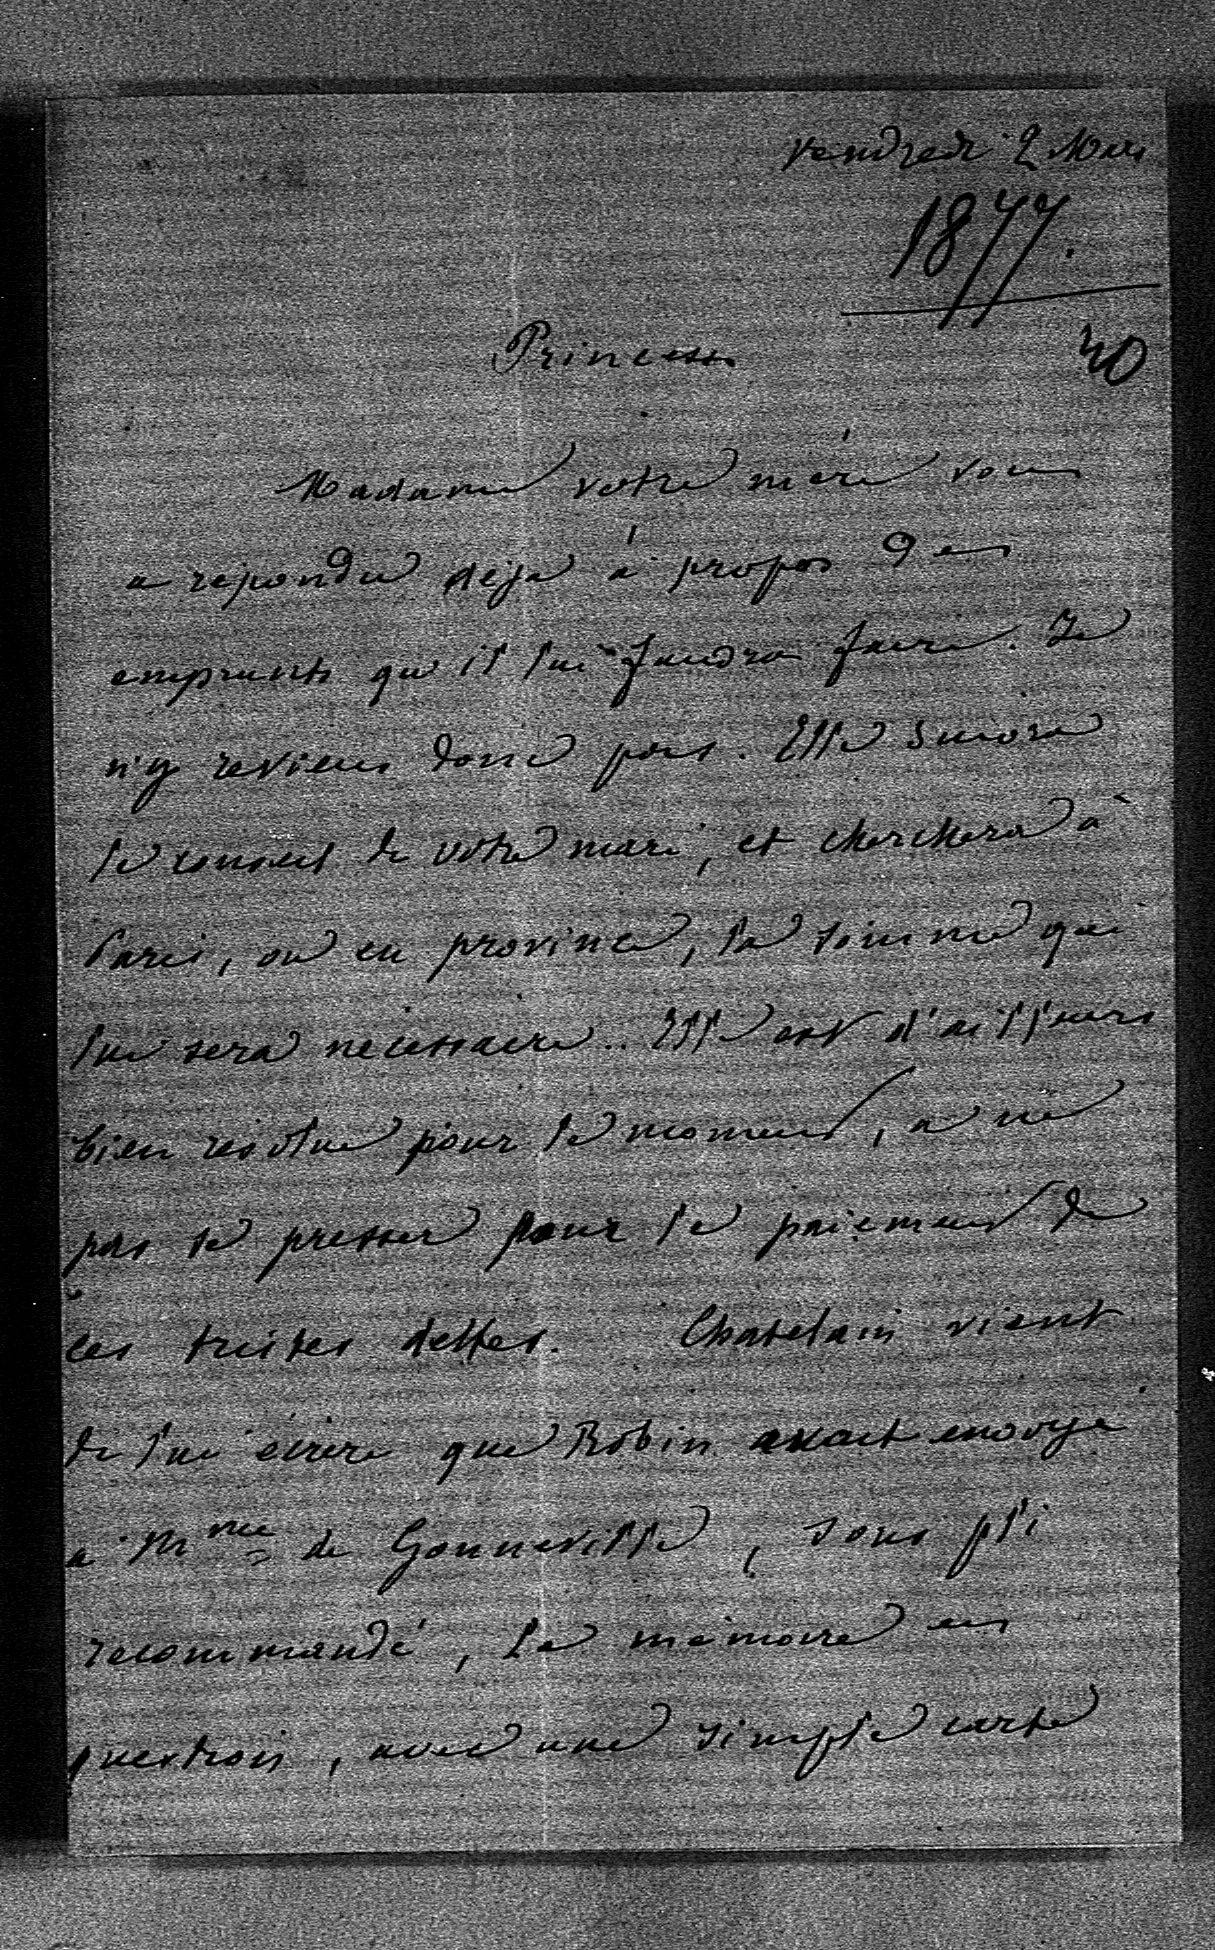 Vendredi 2 Mars
1877.
40
Princesse
Madame votre mère vous
a repondu deja à propos des
emprunts qu'il lui faudra faire. Je
n'y reviens donc pas. Elle suivra
le conseil de votre mari, et cherchera à
Paris, ou en province, la somme qui
lui sera necessaire.. Elle est d'ailleurs
bien resolue pour le moment, a ne
pas se presser pour le paiement de
ces tristes dettes. Chatelain vient
de lui écrire que Robin avait envoyé
a Mme de Gonneville, sous pli
recommandé, le mémoire en
question, avec une simple carte